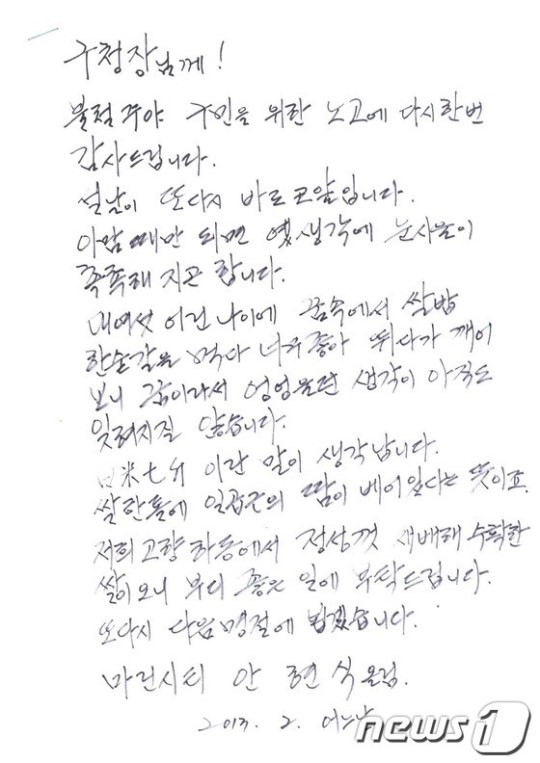 구청장님께!
불철주야 구민을 위한 노고에 다시한번
감사드립니다.
설날이 또다시 바로 코앞입니다.
이맘때만 되면 옛생각에 눈시울이
촉촉해 지곤 합니다.
대여섯 어린 나이에 꿈속에서 쌀밥
한숟갈을 먹다 너무좋아 뛰다가 깨어
보니 꿈이라서 엉엉울던 생각이 아직도
잊혀지질 않습니다.
一米七斤 이란 말이 생각납니다.
쌀한톨에 일곱근의 땀이 베어있다는 뜻이죠.
저희고향 하동에서 정성껏 재배해 수확한
쌀이오니 부디 좋은 일에 부탁드립니다.
또다시 다음명절에 뵙겠습니다.
마린시티 안 현 식 올림.
2013. 2. 어느날
뉴스1